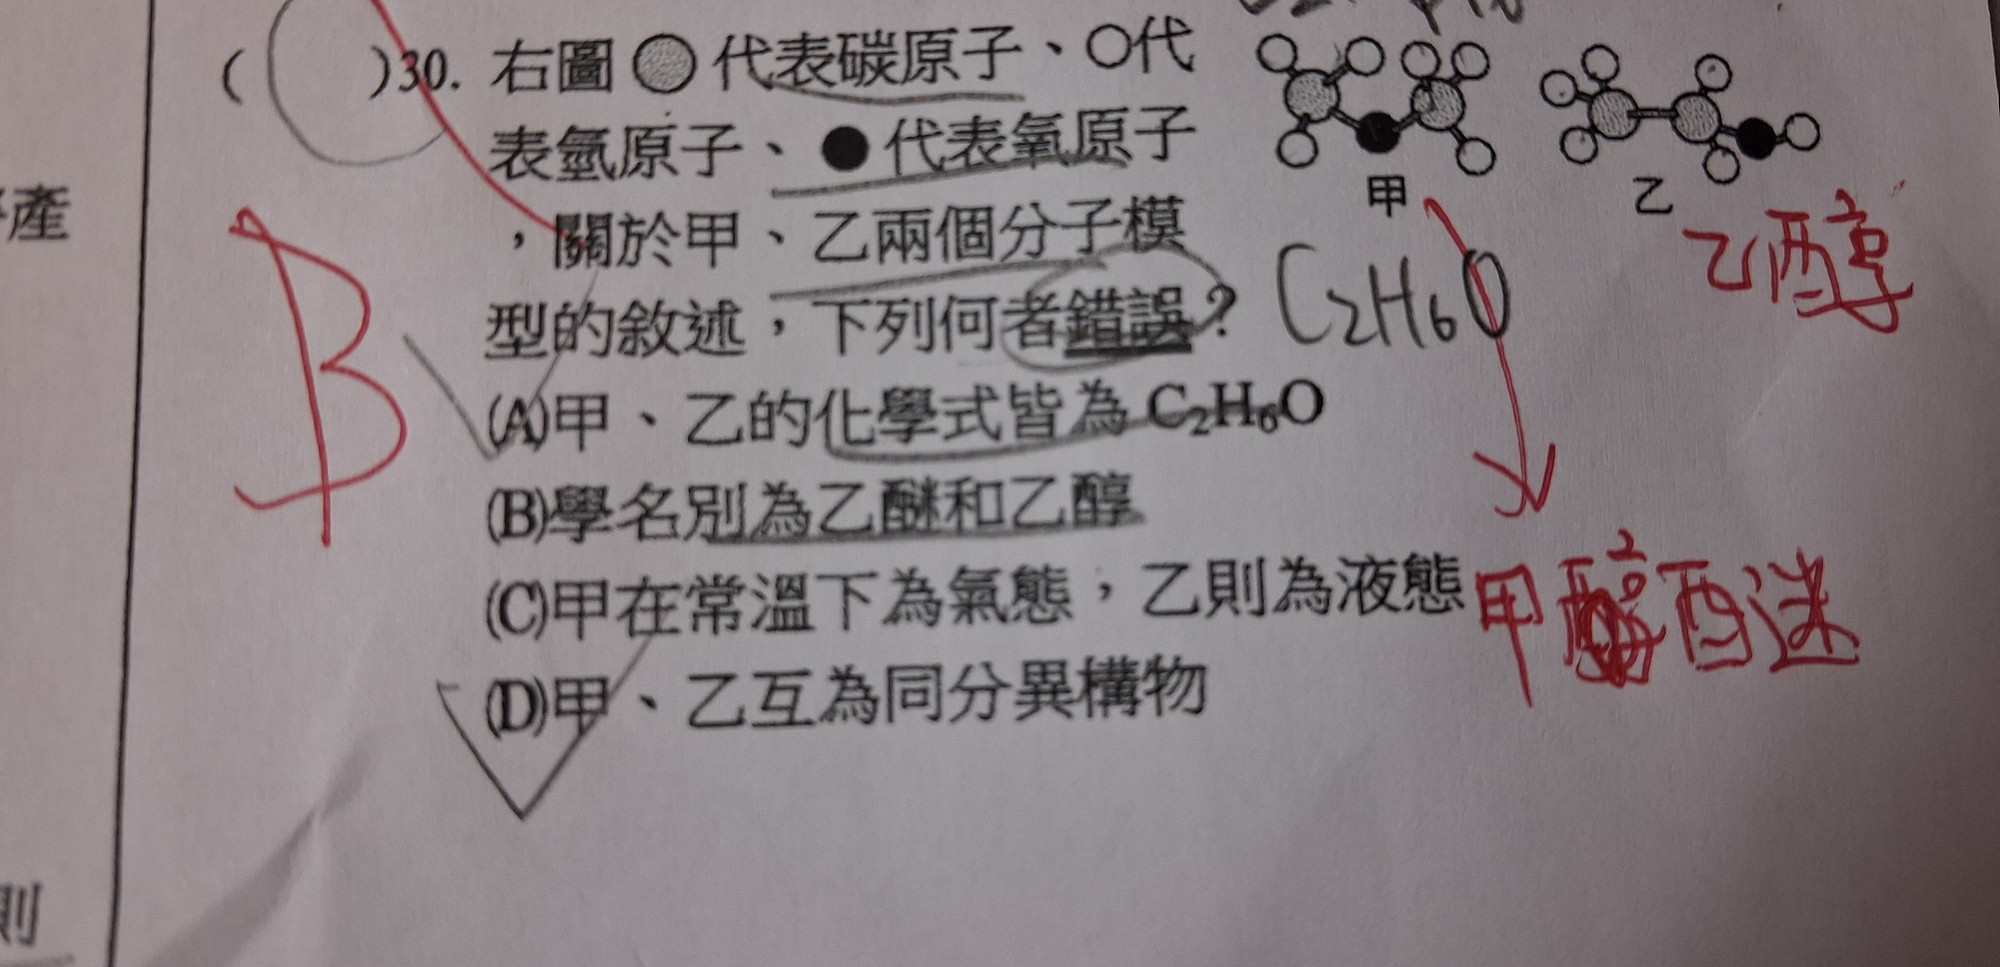 ( )30. 右圖 代表碳原子、○代
表氫原子、●代表氧原子
，關於甲、乙兩個分子模
型的敘述，下列何者錯誤？
(A)甲、乙的化學式皆為 C₂H₆O
(B)學名別為乙醚和乙醇
(C)甲在常溫下為氣態，乙則為液態
(D)甲、乙互為同分異構物
甲
乙
乙醇
C₂H₆O
甲 醚
B
產
則